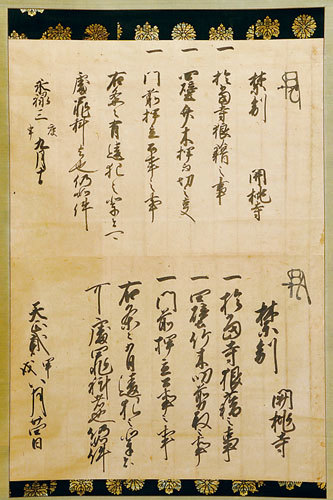 禁制
開桃寺
一於当寺狼藉之事
一四壁竹木押而切之事
一門前押立公事之事
右条々有違犯之輩者
処罪科者也仍如件
永禄三年
九月十日
禁制
開桃寺
一於当寺狼藉之事
一四壁竹木切取事
一門前押立公事之事
右条々有違犯之輩者
可処罪科者也仍如件
天正貳年甲戌
八月廿四日